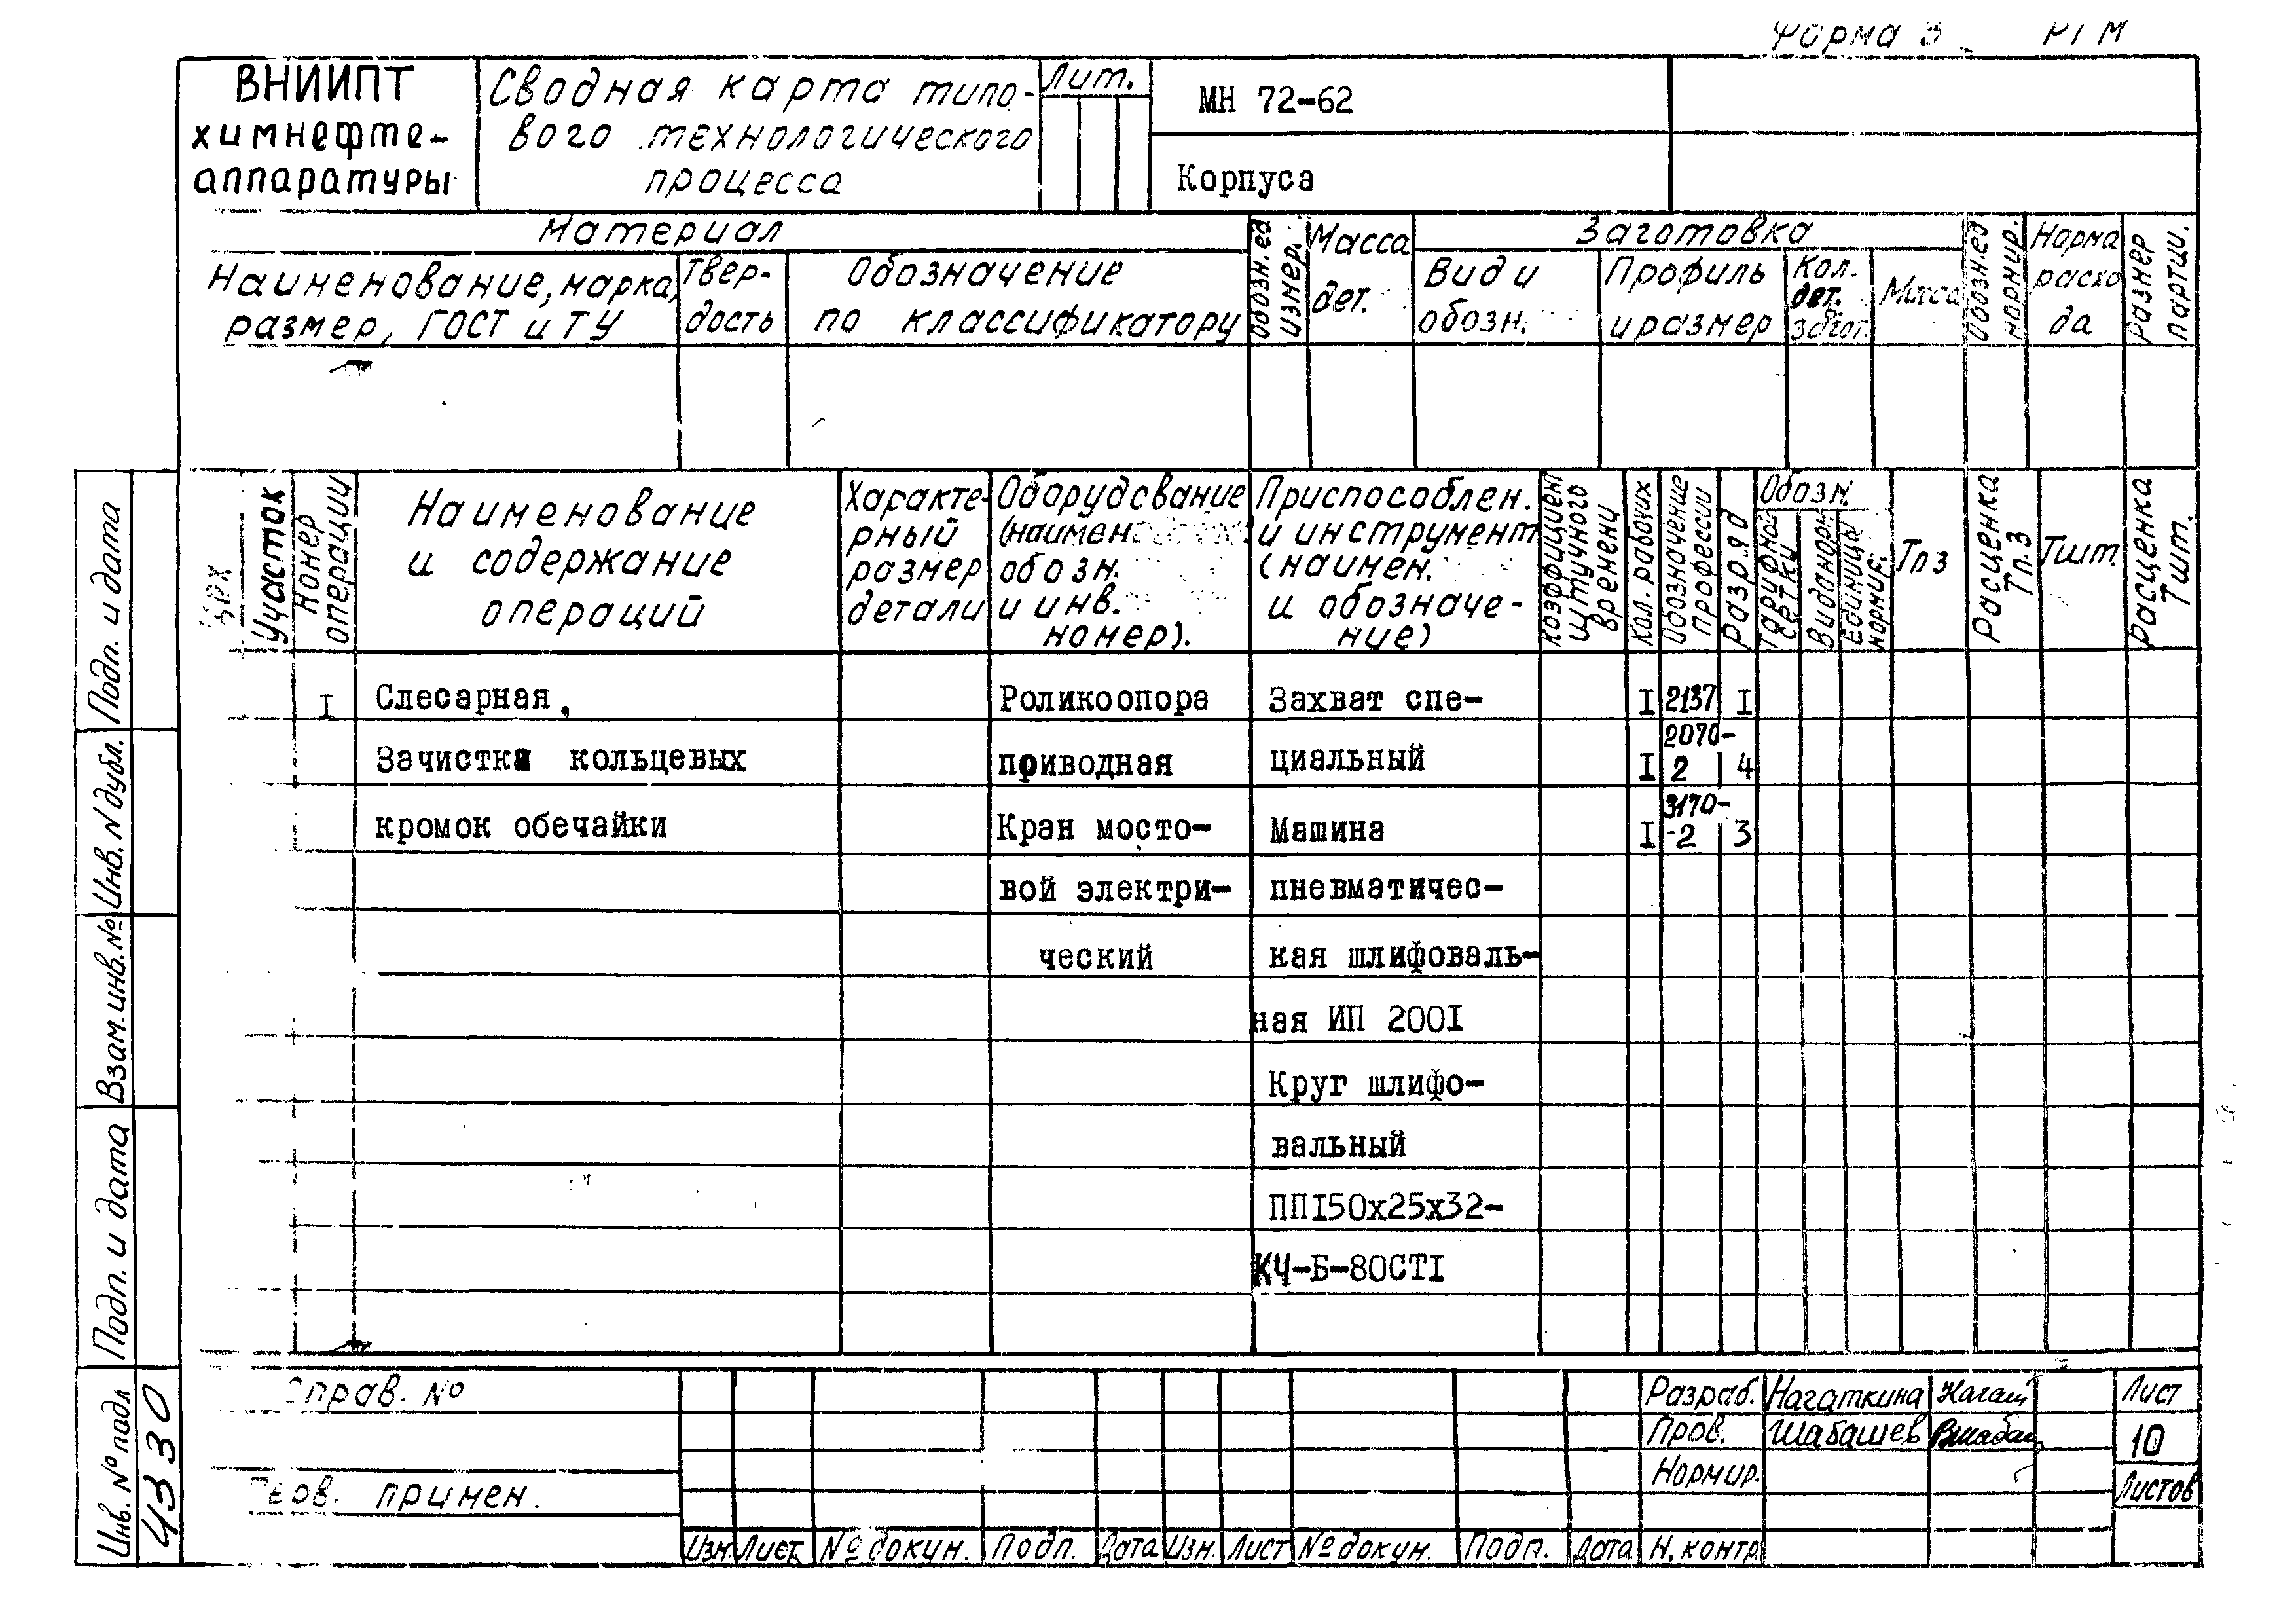 Форма 3 РТМ
ВНИИПТ
химнефте-
аппаратуры
Сводная карта типо-
вого технологического
процесса
Лит.
МН 72-62
Корпуса
Материал
Наименование, марка,
размер, ГОСТ и ТУ
Твер-
дость
Обозначение
по классификатору
Обозн. ед
измер.
Масса
дет.
Заготовка
Вид и
обозн.
Профиль
и размер
Кол.
дет. в
загот.
Масса
Обозн. ед
нормир.
Норма
расхо
да
Размер
партии.
Цех
Участок
Номер
операции
Наименование
и содержание
операций
Характе-
рный
размер
детали
Оборудование
(наимен
обозн.
и инв.
номер).
Приспособлен.
и инструмент
(наимен.
и обозначе-
ние)
Коэффициент
штучного
времени
Кол. рабочих
Обозначение
профессии
Разряд
Обозн.
Тарифной
сетки
Вида норм
Единица
нормир.
Тпз
Расценка
Тп.з
Тшт.
Расценка
Тшт.
I Слесарная. Роликоопора Захват спе- I 2137 I
Зачистка кольцевых приводная циальный I 2070-
2 4
кромок обечайки Кран мосто- Машина I 3170-
-2 3
вой электри- пневматичес-
ческий кая шлифоваль-
ная ИП 200I
Круг шлифо-
вальный
ППI50х25х32-
КЧ-Б-80СТI
Подп. и дата
Инв. N дубл.
Взам. инв. №
Подп. и дата
Инв. № подл
4330
Справ. №
Перв. примен.
Изм. Лист № докум. Подп. Дата Изм. Лист № докум. Подп. Дата
Разраб. Нагаткина Нагат
Пров. Шабашев Вшабаш
Нормир.
Н. контр
Лист
10
Листов